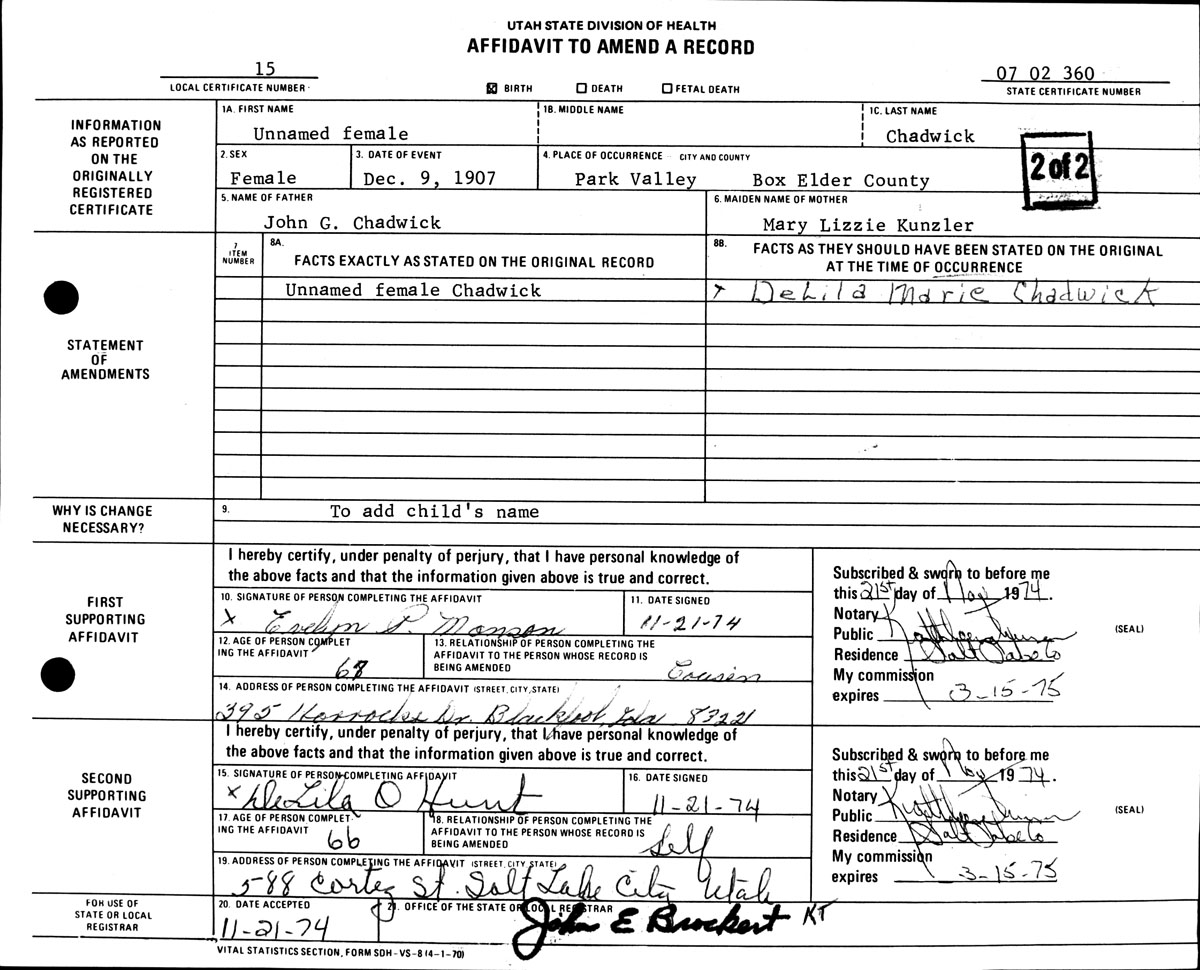 UTAH STATE DIVISION OF HEALTH
AFFIDAVIT TO AMEND A RECORD
15
LOCAL CERTIFICATE NUMBER
☒ BIRTH ☐ DEATH ☐ FETAL DEATH
07 02 360
STATE CERTIFICATE NUMBER
INFORMATION
AS REPORTED
ON THE
ORIGINALLY
REGISTERED
CERTIFICATE
1A. FIRST NAME 1B. MIDDLE NAME 1C. LAST NAME
Unnamed female Chadwick
2. SEX 3. DATE OF EVENT 4. PLACE OF OCCURRENCE CITY AND COUNTY
Female Dec. 9, 1907 Park Valley Box Elder County
2 of 2
5. NAME OF FATHER 6. MAIDEN NAME OF MOTHER
John G. Chadwick Mary Lizzie Kunzler
STATEMENT
OF
AMENDMENTS
7
ITEM
NUMBER
8A.
FACTS EXACTLY AS STATED ON THE ORIGINAL RECORD
8B. FACTS AS THEY SHOULD HAVE BEEN STATED ON THE ORIGINAL
AT THE TIME OF OCCURRENCE
Unnamed female Chadwick x DeLila Marie Chadwick
WHY IS CHANGE
NECESSARY?
9. To add child's name
FIRST
SUPPORTING
AFFIDAVIT
I hereby certify, under penalty of perjury, that I have personal knowledge of
the above facts and that the information given above is true and correct.
10. SIGNATURE OF PERSON COMPLETING THE AFFIDAVIT 11. DATE SIGNED
x Evelyn P. Monson 11-21-74
12. AGE OF PERSON COMPLET
ING THE AFFIDAVIT
68
13. RELATIONSHIP OF PERSON COMPLETING THE
AFFIDAVIT TO THE PERSON WHOSE RECORD IS
BEING AMENDED
Cousin
14. ADDRESS OF PERSON COMPLETING THE AFFIDAVIT (STREET, CITY, STATE)
395 Horrocks Dr. Blackfoot, Ida 83221
Subscribed & sworn to before me
this 21st day of Nov 1974.
Notary
Public
Residence Salt Lake Co
My commission
expires 3-15-75
(SEAL)
SECOND
SUPPORTING
AFFIDAVIT
I hereby certify, under penalty of perjury, that I have personal knowledge of
the above facts and that the information given above is true and correct.
15. SIGNATURE OF PERSON COMPLETING AFFIDAVIT 16. DATE SIGNED
x DeLila O Hunt 11-21-74
17. AGE OF PERSON COMPLET
ING THE AFFIDAVIT
66
18. RELATIONSHIP OF PERSON COMPLETING THE
AFFIDAVIT TO THE PERSON WHOSE RECORD IS
BEING AMENDED
Self
19. ADDRESS OF PERSON COMPLETING THE AFFIDAVIT (STREET, CITY, STATE)
588 Cortez St. Salt Lake City Utah
Subscribed & sworn to before me
this 21st day of Nov 1974.
Notary
Public
Residence Salt Lake Co
My commission
expires 3-15-75
(SEAL)
FOR USE OF
STATE OR LOCAL
REGISTRAR
20. DATE ACCEPTED 21. OFFICE OF THE STATE OR LOCAL REGISTRAR
11-21-74 John E Brockert KT
VITAL STATISTICS SECTION, FORM SDH-VS-8 (4-1-70)